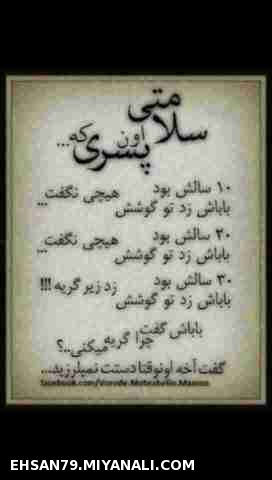 سلامتی
اون پسری که...
۱۰ سالش بود
باباش زد تو گوشش هیچی نگفت...
۲۰ سالش بود
باباش زد تو گوشش هیچی نگفت...
۳۰ سالش بود
باباش زد تو گوشش زد زیر گریه!!!
باباش گفت
چرا گریه میکنی..؟
گفت آخه اونوقتا دستت نمیلرزید...
EHSAN79.MIYANALI.COM